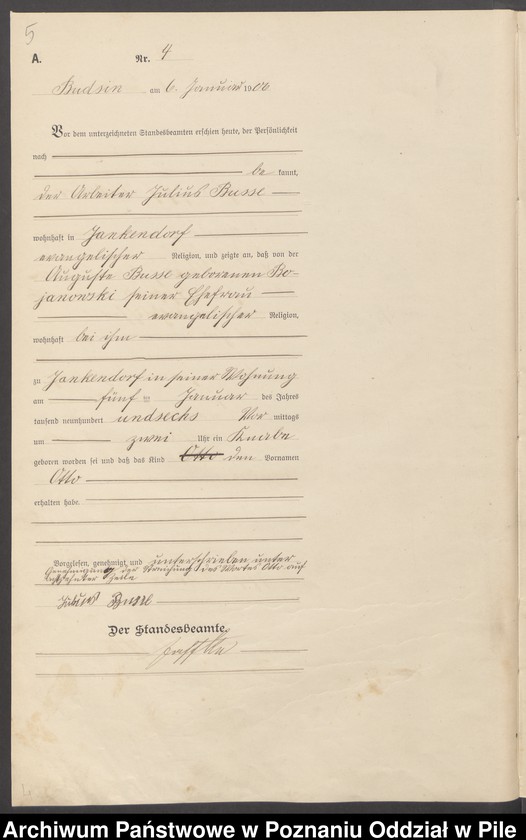 5
A. Nr. 4
Budsin am 6. Januar 1906.
Vor dem unterzeichneten Standesbeamten erschien heute, der Persönlichkeit
nach
be kannt,
der Arbeiter Julius Busse
wohnhaft in Jankendorf
evangelischer Religion, und zeigte an, daß von der
Auguste Busse geborenen Bo-
janowski seiner Ehefrau
evangelischer Religion,
wohnhaft bei ihm
zu Jankendorf in seiner Wohnung
am fünf ten Januar des Jahres
tausend neunhundert undsechs Vor mittags
um zwei Uhr ein Knabe
geboren worden sei und daß das Kind Otto den Vornamen
Otto
erhalten habe.
Vorgelesen, genehmigt und unterschrieben unter
Genehmigung der Streichung des Wortes Otto auf
Zeile
Julius Busse
Der Standesbeamte.
Archiwum Państwowe w Poznaniu Oddział w Pile